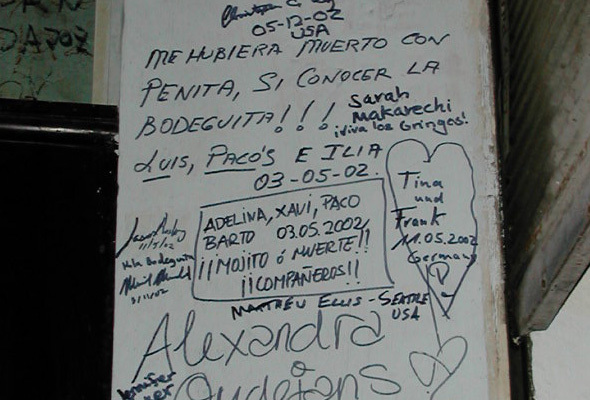 05-12-02
USA
ME HUBIERA MUERTO CON
PENITA, SI CONOCER LA
BODEGUITA!!!
Sarah
Makarechi
¡Viva los Gringos!
LUIS, PACO'S E ILIA
03-05-02.
ADELINA, XAVI, PACO
BARTO 03.05.2002
¡¡MOJITO ó MUERTE!!
¡¡COMPAÑEROS!!
Tina
und
Frank
11.05.2002
Germany
Bodeguita
MATTHEW ELLIS - SEATTLE
USA
Alexandra
Oudejans
Jennifer